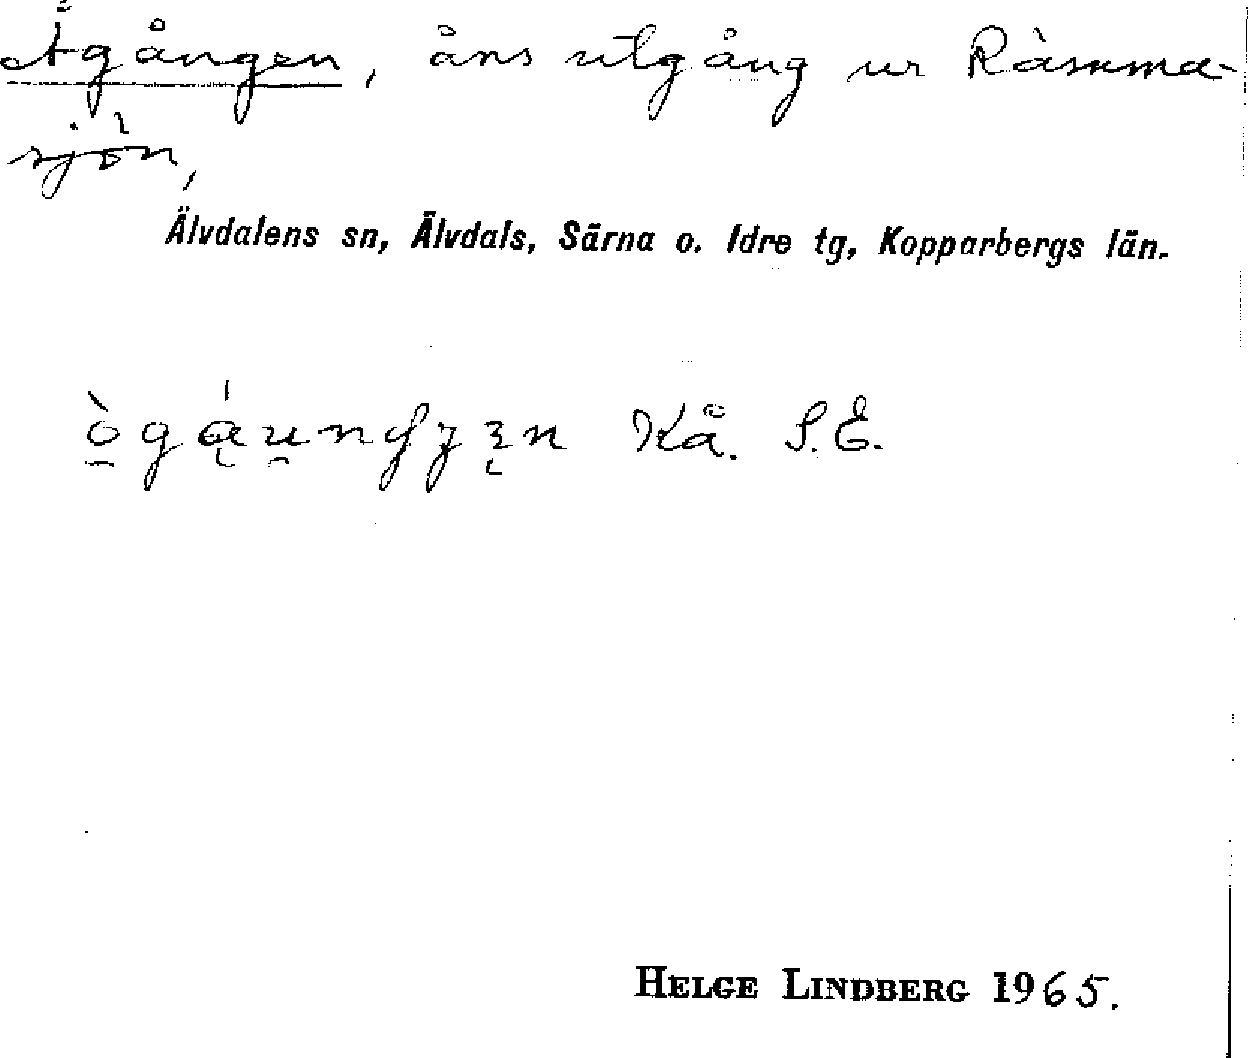 Ågången, åns utgång ur Råmma-
sjön,
Älvdalens sn, Älvdals, Särna o. Idre tg, Kopparbergs län.
Kå. S.E.
HELGE LINDBERG 1965.